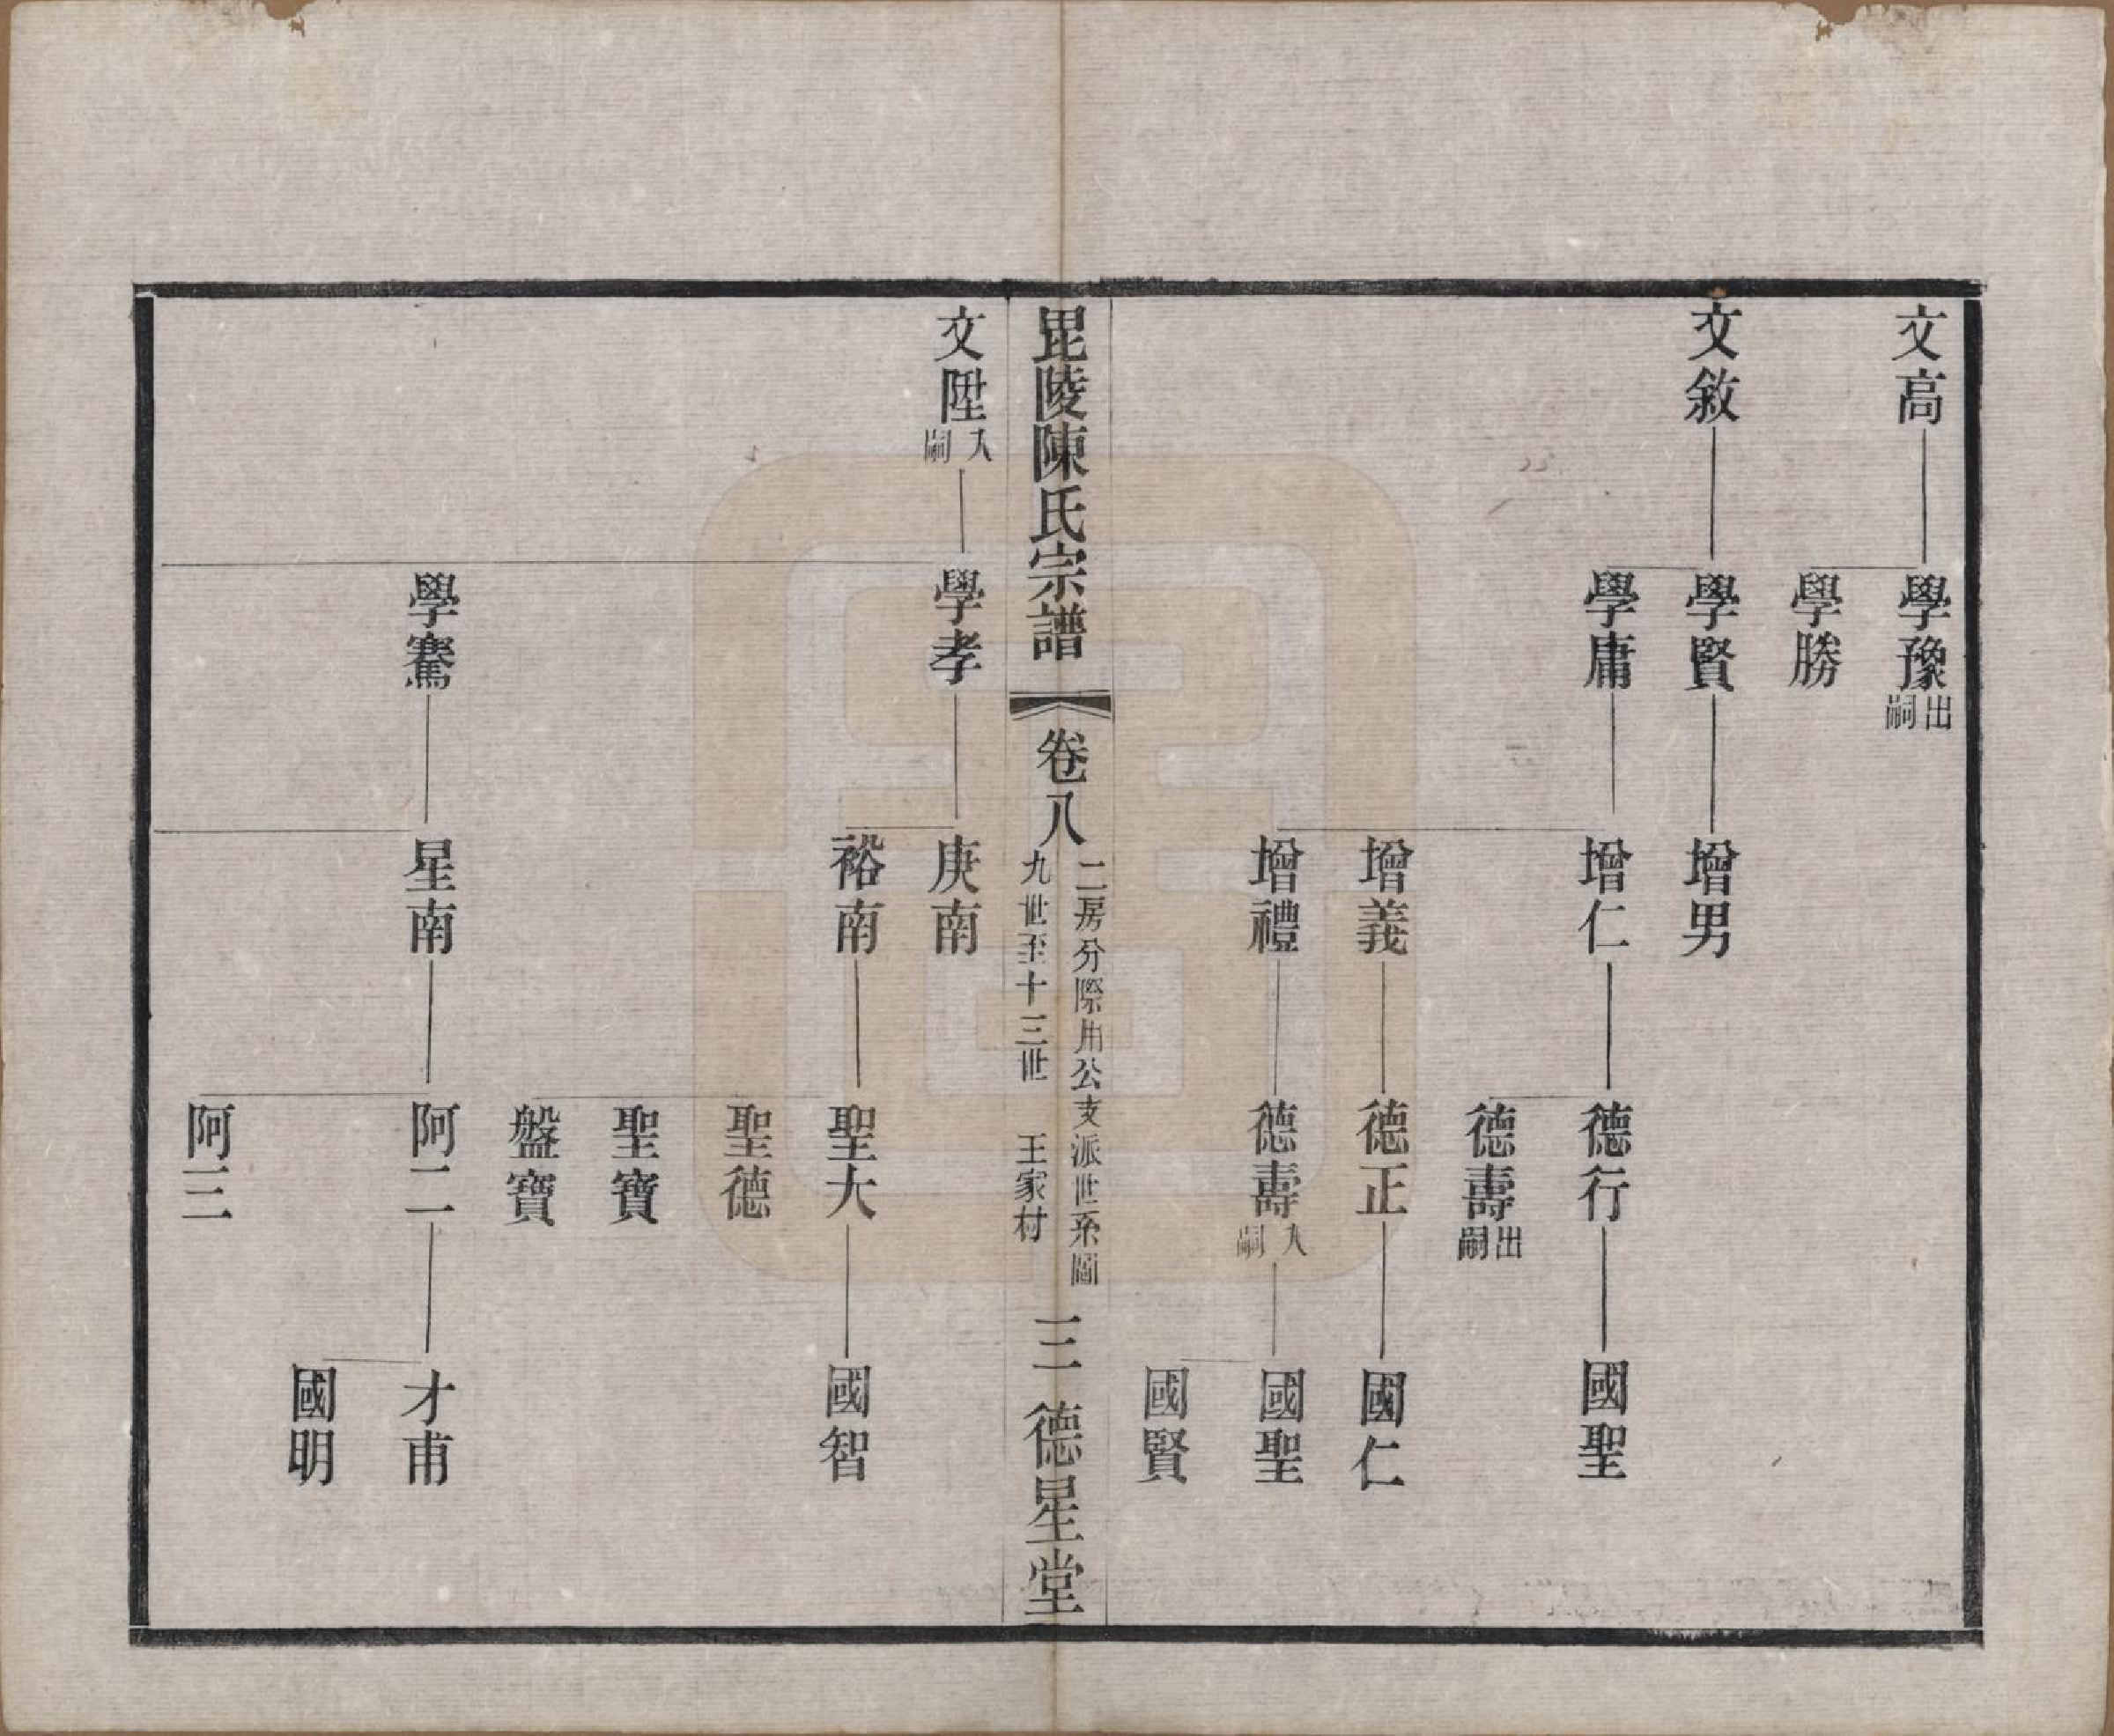 文高
學豫出嗣
學勝
文敘
學賢
增男
學庸
增仁
德行
國聖
德壽出嗣
增義
德正
國仁
增禮
德壽入嗣
國聖
國賢
毘陵陳氏宗譜
卷八
二房分際用公支派世系圖
九世至十三世 王家村
三
德星堂
文陞入嗣
學孝
庚南
裕南
聖大
國智
聖德
聖寶
盤寶
學騫
星南
阿二
才甫
國明
阿三